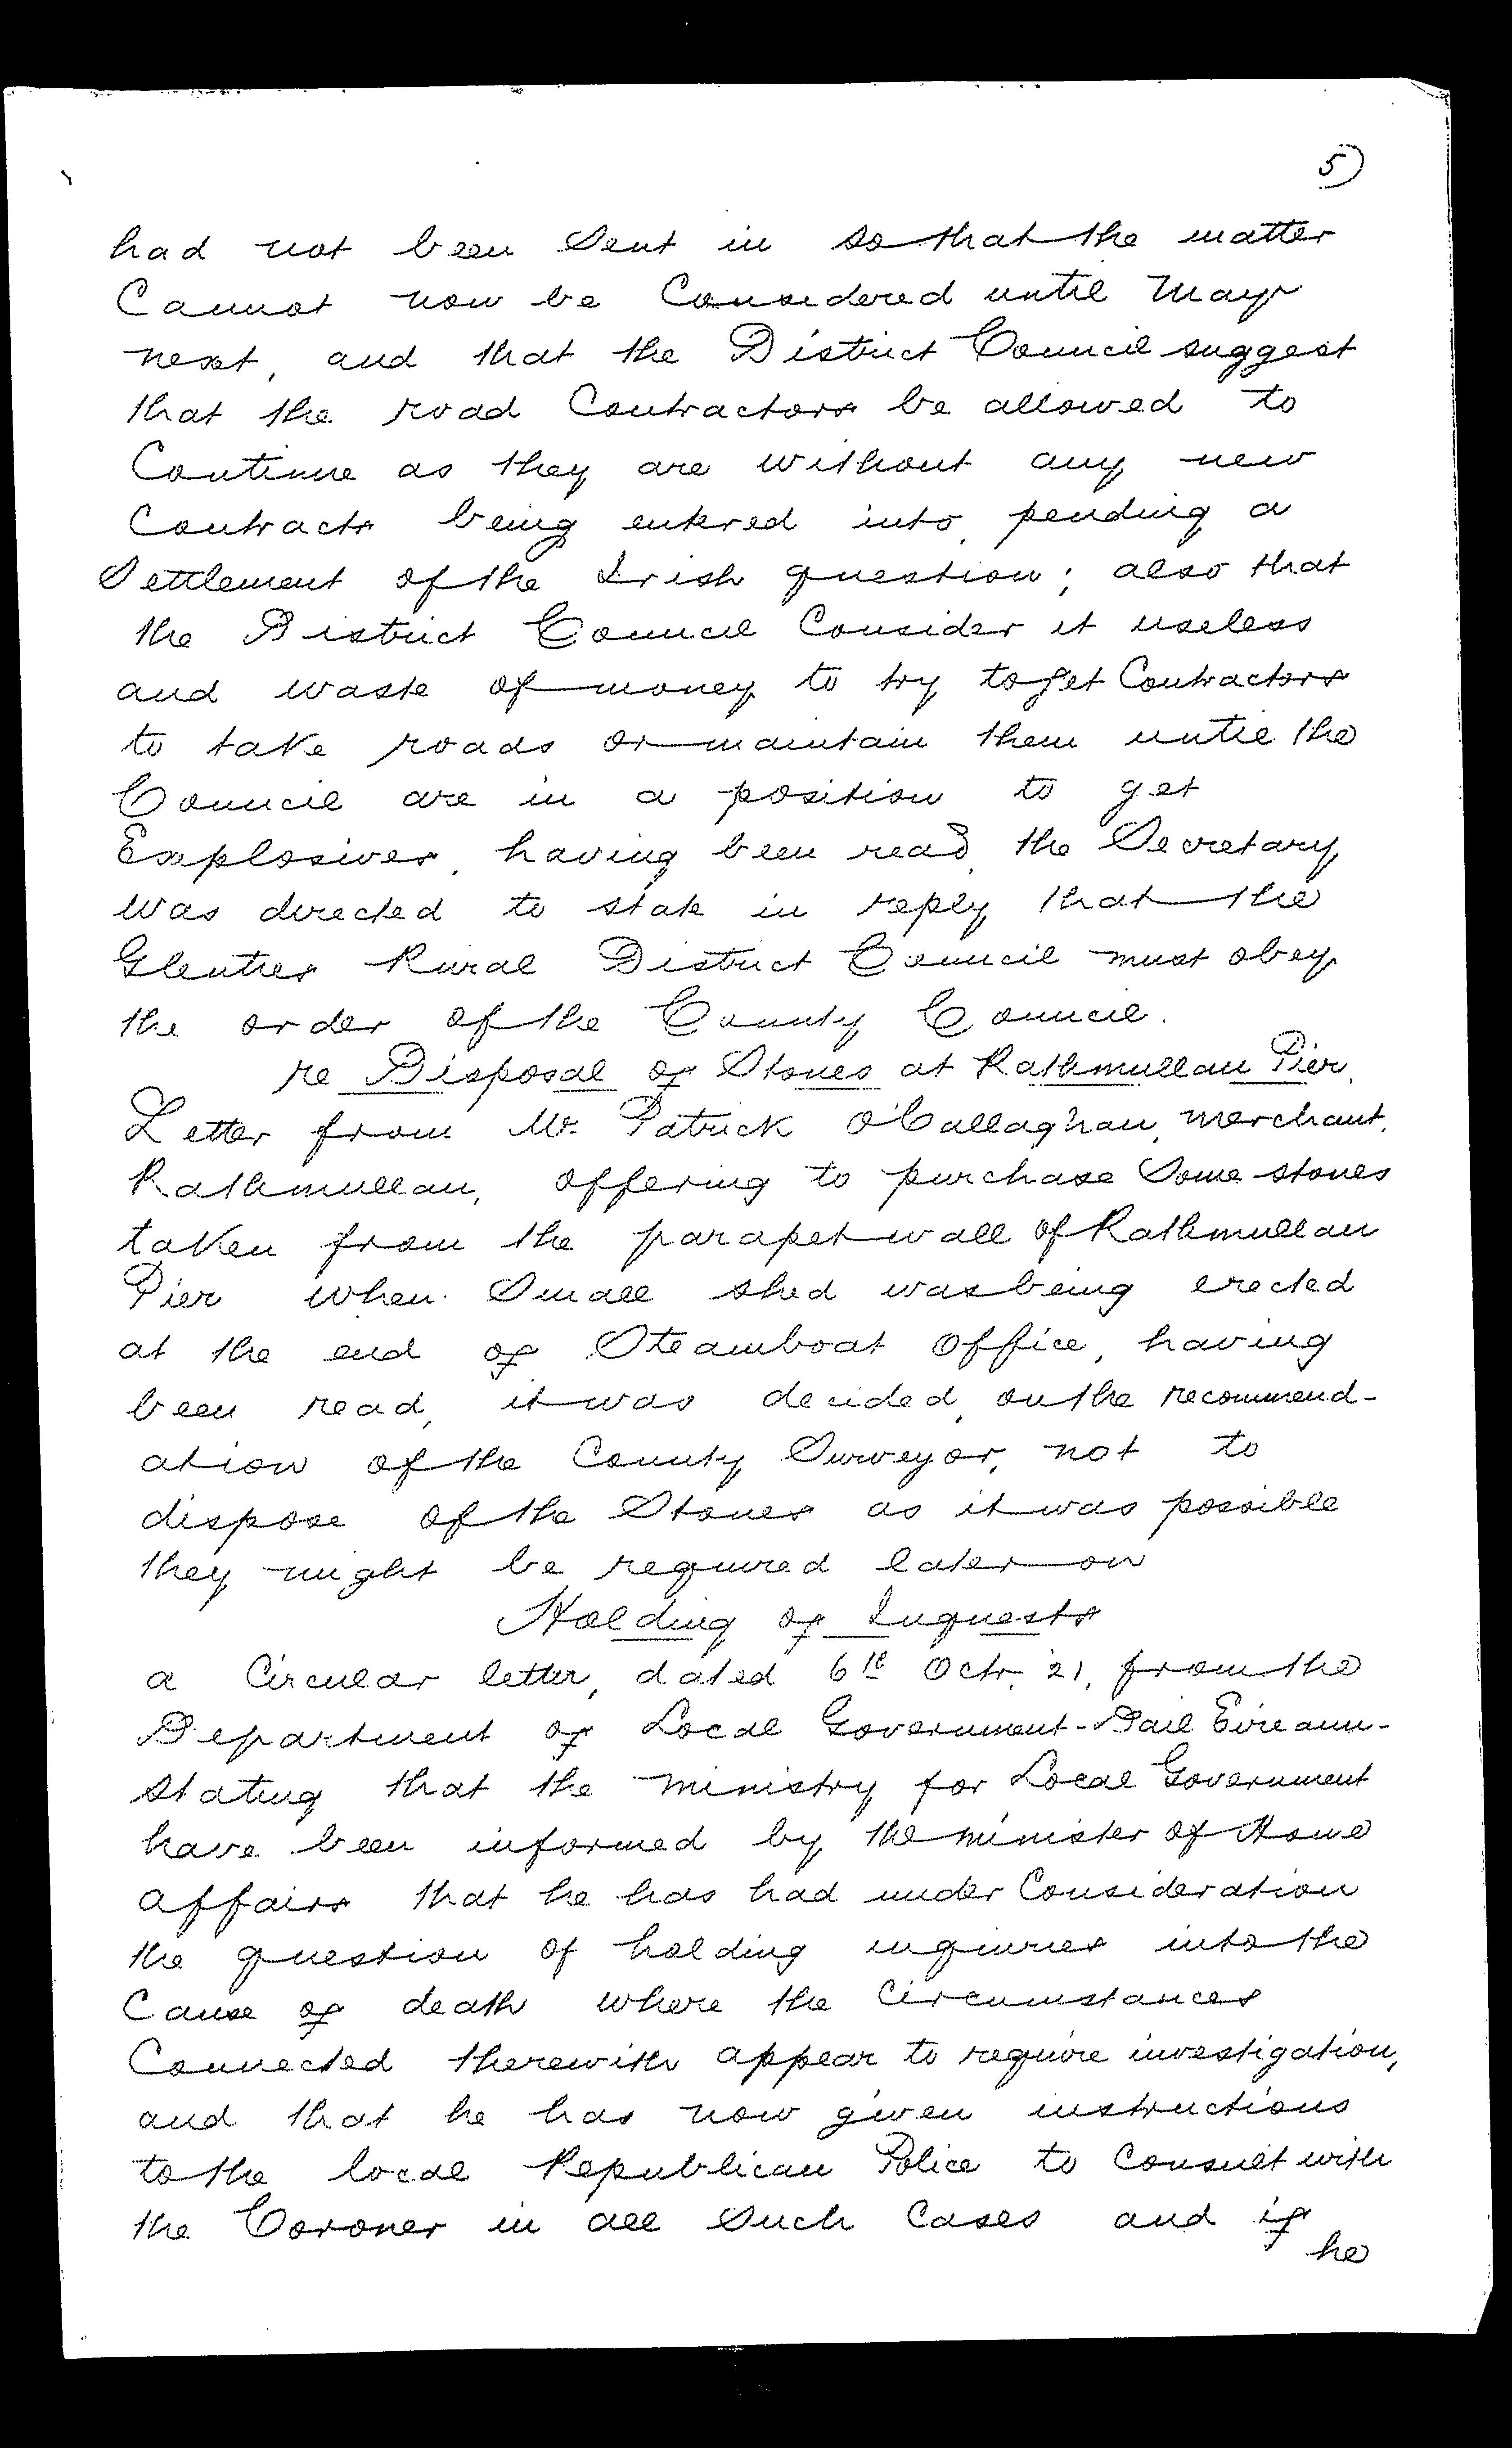 5)
had not been Sent in so that the matter
Cannot now be Considered until May
next, and that the District Council suggest
that the road Contractors be allowed to
Continue as they are without any new
Contracts being entered into, pending a
Settlement of the Irish question; also that
the District Council Consider it useless
and waste of money to try to get Contractors
to take roads or maintain them until the
Council are in a position to get
Explosives, having been read, the Secretary
was directed to state in reply that the
Glenties Rural District Council must obey
the order of the County Council.
re Disposal of Stones at Rathmullan Pier.
Letter from Mr. Patrick O'Callaghan, merchant,
Rathmullan, offering to purchase Some stones
taken from the parapet wall of Rathmullan
Pier when Small shed was being erected
at the end of Steamboat Office, having
been read, it was decided, on the recommend-
ation of the County Surveyor, not to
dispose of the Stones as it was possible
they might be required later on
Holding of Inquests
a Circular letter, dated 6th Octr. '21, from the
Department of Local Government - Dail Eireann -
stating that the ministry for Local Government
have been informed by the minister of Home
affairs that he has had under Consideration
the question of holding inquiries into the
Cause of death where the Circumstances
Connected therewith appear to require investigation,
and that he has now given instructions
to the local Republican Police to Consult with
the Coroner in all Such Cases and if
he